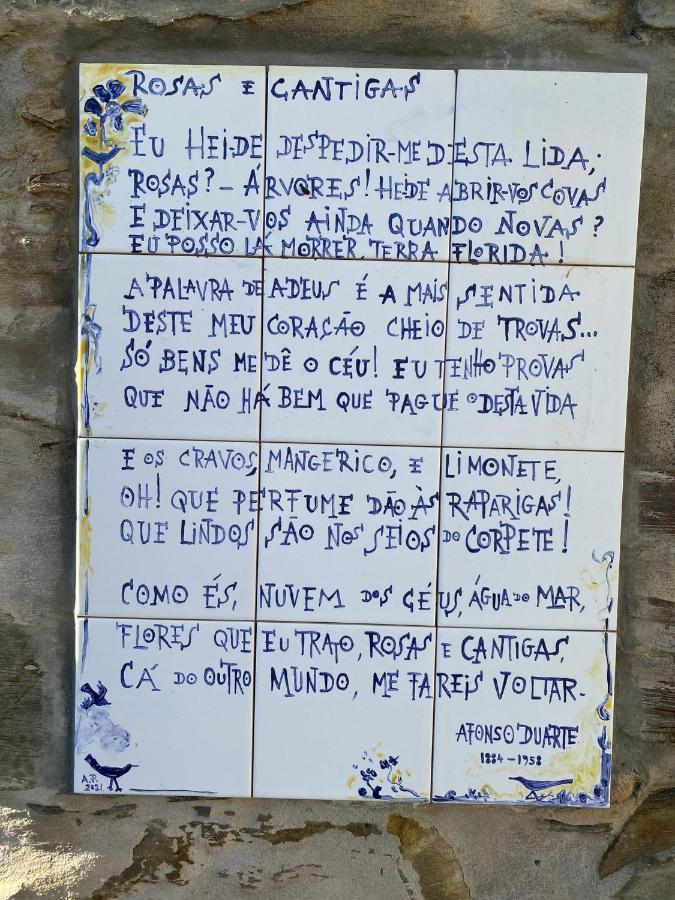 ROSAS E CANTIGAS
EU HEI-DE DESPEDIR-ME DESTA LIDA,
ROSAS? - ÁRVORES! HEI DE ABRIR-VOS COVAS
E DEIXAR-VOS AINDA QUANDO NOVAS?
EU POSSO LÁ MORRER, TERRA FLORIDA!
A PALAVRA DE ADEUS É A MAIS SENTIDA
DESTE MEU CORAÇÃO CHEIO DE TROVAS...
SÓ BENS ME DÊ O CÉU! EU TENHO PROVAS
QUE NÃO HÁ BEM QUE PAGUE O DESTA VIDA
E OS CRAVOS, MANGERICO, E LIMONETE,
OH! QUE PERFUME DÃO ÀS RAPARIGAS!
QUE LINDOS SÃO NOS SEIOS DO CORPETE!
COMO ÉS, NUVEM DOS CÉUS, ÁGUA DO MAR,
FLORES QUE EU TRATO, ROSAS E CANTIGAS,
CÁ DO OUTRO MUNDO, ME FAREIS VOLTAR.
AFONSO DUARTE
1884-1958
A.P.
2021